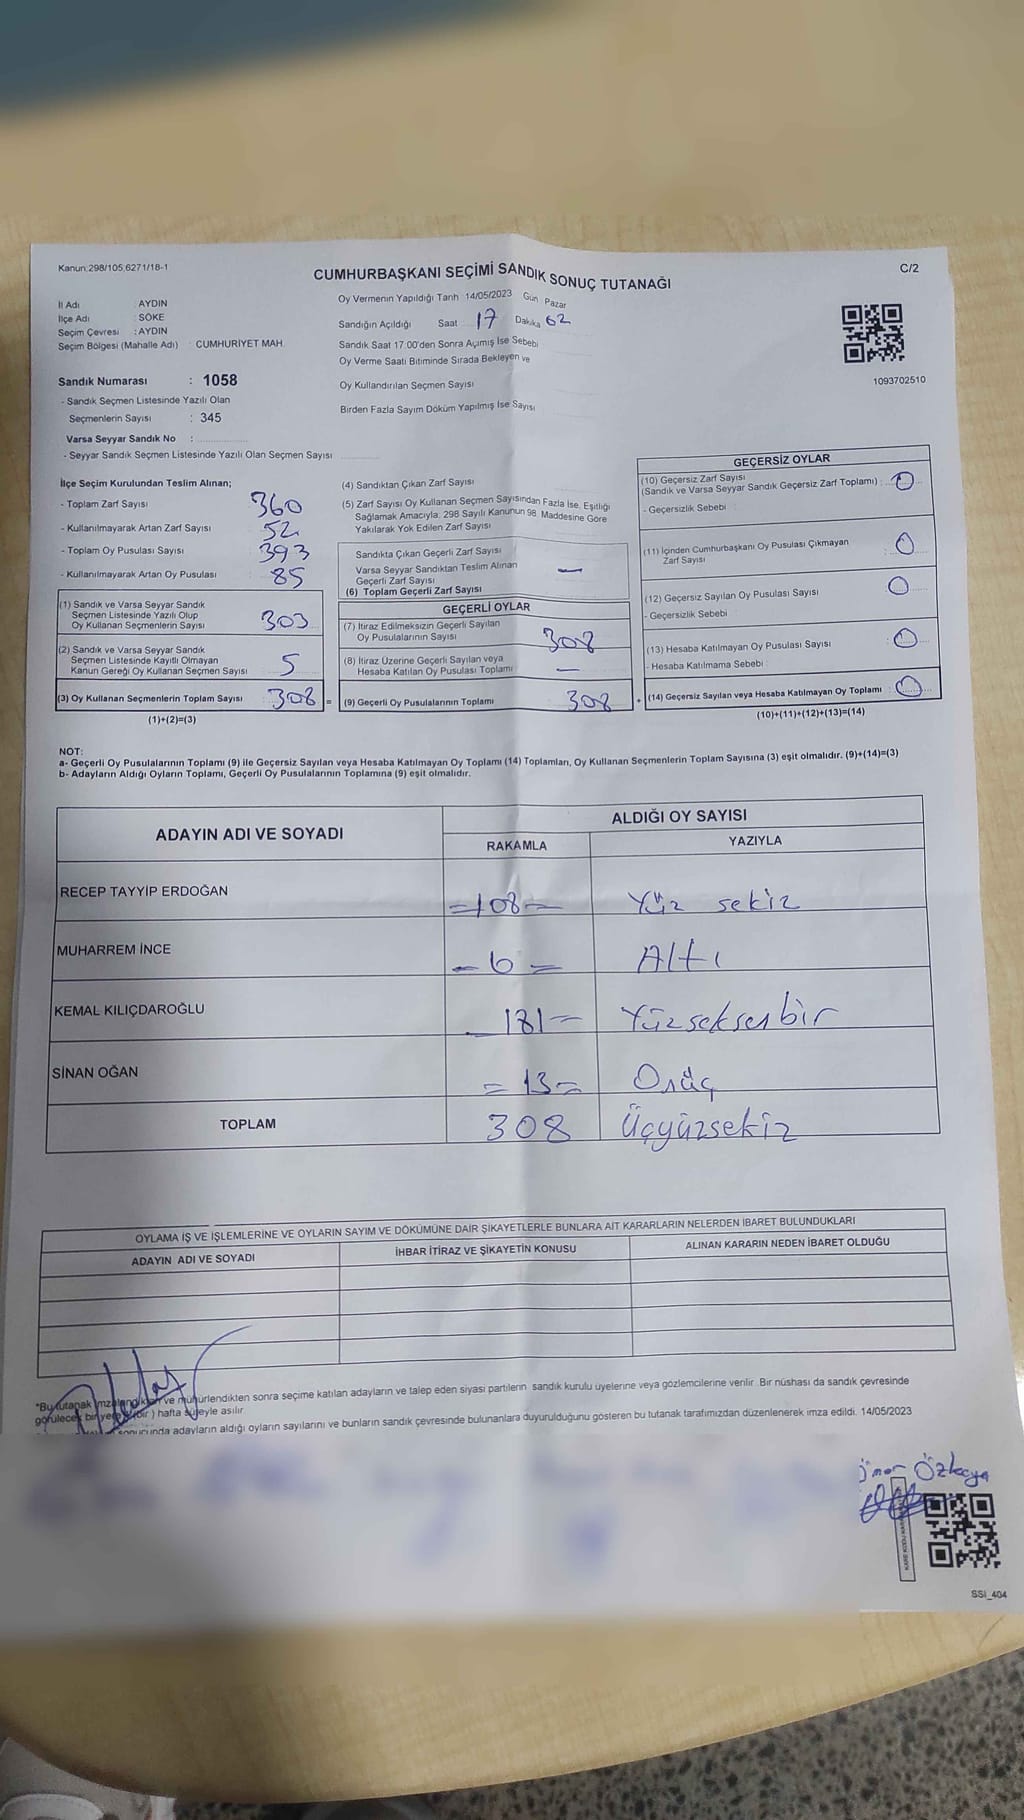 Kanun:298/105,6271/18-1
CUMHURBAŞKANI SEÇİMİ SANDIK SONUÇ TUTANAĞI
C/2
İl Adı : AYDIN
İlçe Adı : SÖKE
Seçim Çevresi : AYDIN
Seçim Bölgesi (Mahalle Adı) : CUMHURİYET MAH.
Oy Vermenin Yapıldığı Tarih 14/05/2023 Gün Pazar
Sandığın Açıldığı Saat 17 Dakika
Sandık Saat 17.00'den Sonra Açımış İse Sebebi
Oy Verme Saati Bitiminde Sırada Bekleyen ve
Oy Kullandırılan Seçmen Sayısı
Birden Fazla Sayım Döküm Yapılmış İse Sayısı
1093702510
Sandık Numarası : 1058
- Sandık Seçmen Listesinde Yazılı Olan
Seçmenlerin Sayısı : 345
Varsa Seyyar Sandık No :
- Seyyar Sandık Seçmen Listesinde Yazılı Olan Seçmen Sayısı
İlçe Seçim Kurulundan Teslim Alınan;
- Toplam Zarf Sayısı 360
- Kullanılmayarak Artan Zarf Sayısı 52
- Toplam Oy Pusulası Sayısı 393
- Kullanılmayarak Artan Oy Pusulası 85
(1) Sandık ve Varsa Seyyar Sandık
Seçmen Listesinde Yazılı Olup
Oy Kullanan Seçmenlerin Sayısı 303
(2) Sandık ve Varsa Seyyar Sandık
Seçmen Listesinde Kayıtlı Olmayan
Kanun Gereği Oy Kullanan Seçmen Sayısı 5
(3) Oy Kullanan Seçmenlerin Toplam Sayısı 308 =
(1)+(2)=(3)
(4) Sandıktan Çıkan Zarf Sayısı
(5) Zarf Sayısı Oy Kullanan Seçmen Sayısından Fazla İse, Eşitliği
Sağlamak Amacıyla, 298 Sayılı Kanunun 98. Maddesine Göre
Yakılarak Yok Edilen Zarf Sayısı
Sandıkta Çıkan Geçerli Zarf Sayısı
Varsa Seyyar Sandıktan Teslim Alınan
Geçerli Zarf Sayısı —
(6) Toplam Geçerli Zarf Sayısı
GEÇERLİ OYLAR
(7) İtiraz Edilmeksizin Geçerli Sayılan
Oy Pusulalarının Sayısı 308
(8) İtiraz Üzerine Geçerli Sayılan veya
Hesaba Katılan Oy Pusulası Toplamı —
(9) Geçerli Oy Pusulalarının Toplamı 308
GEÇERSİZ OYLAR
(10) Geçersiz Zarf Sayısı
(Sandık ve Varsa Seyyar Sandık Geçersiz Zarf Toplamı) : 0
- Geçersizlik Sebebi
(11) İçinden Cumhurbaşkanı Oy Pusulası Çıkmayan
Zarf Sayısı 0
(12) Geçersiz Sayılan Oy Pusulası Sayısı 0
- Geçersizlik Sebebi
(13) Hesaba Katılmayan Oy Pusulası Sayısı : 0
- Hesaba Katılmama Sebebi
(14) Geçersiz Sayılan veya Hesaba Katılmayan Oy Toplamı 0
(10)+(11)+(12)+(13)=(14)
NOT:
a- Geçerli Oy Pusulalarının Toplamı (9) ile Geçersiz Sayılan veya Hesaba Katılmayan Oy Toplamı (14) Toplamları, Oy Kullanan Seçmenlerin Toplam Sayısına (3) eşit olmalıdır. (9)+(14)=(3)
b- Adayların Aldığı Oyların Toplamı, Geçerli Oy Pusulalarının Toplamına (9) eşit olmalıdır.
ADAYIN ADI VE SOYADI
ALDIĞI OY SAYISI
RAKAMLA YAZIYLA
RECEP TAYYİP ERDOĞAN =108= Yüz sekiz
MUHARREM İNCE -6= Altı
KEMAL KILIÇDAROĞLU 181= Yüzseksenbir
SİNAN OĞAN =13= Onüç
TOPLAM 308 Üçyüzsekiz
OYLAMA İŞ VE İŞLEMLERİNE VE OYLARIN SAYIM VE DÖKÜMÜNE DAİR ŞİKAYETLERLE BUNLARA AİT KARARLARIN NELERDEN İBARET BULUNDUKLARI
ADAYIN ADI VE SOYADI İHBAR İTİRAZ VE ŞİKAYETİN KONUSU ALINAN KARARIN NEDEN İBARET OLDUĞU
*Bu tutanak imzalandıktan ve mühürlendikten sonra seçime katılan adayların ve talep eden siyasi partilerin sandık kurulu üyelerine veya gözlemcilerine verilir. Bir nüshası da sandık çevresinde
görülecek bir yere (bir) hafta süreyle asılır.
sonucunda adayların aldığı oyların sayılarını ve bunların sandık çevresinde bulunanlara duyurulduğunu gösteren bu tutanak tarafımızdan düzenlenerek imza edildi. 14/05/2023
Özkaya
SSI_404